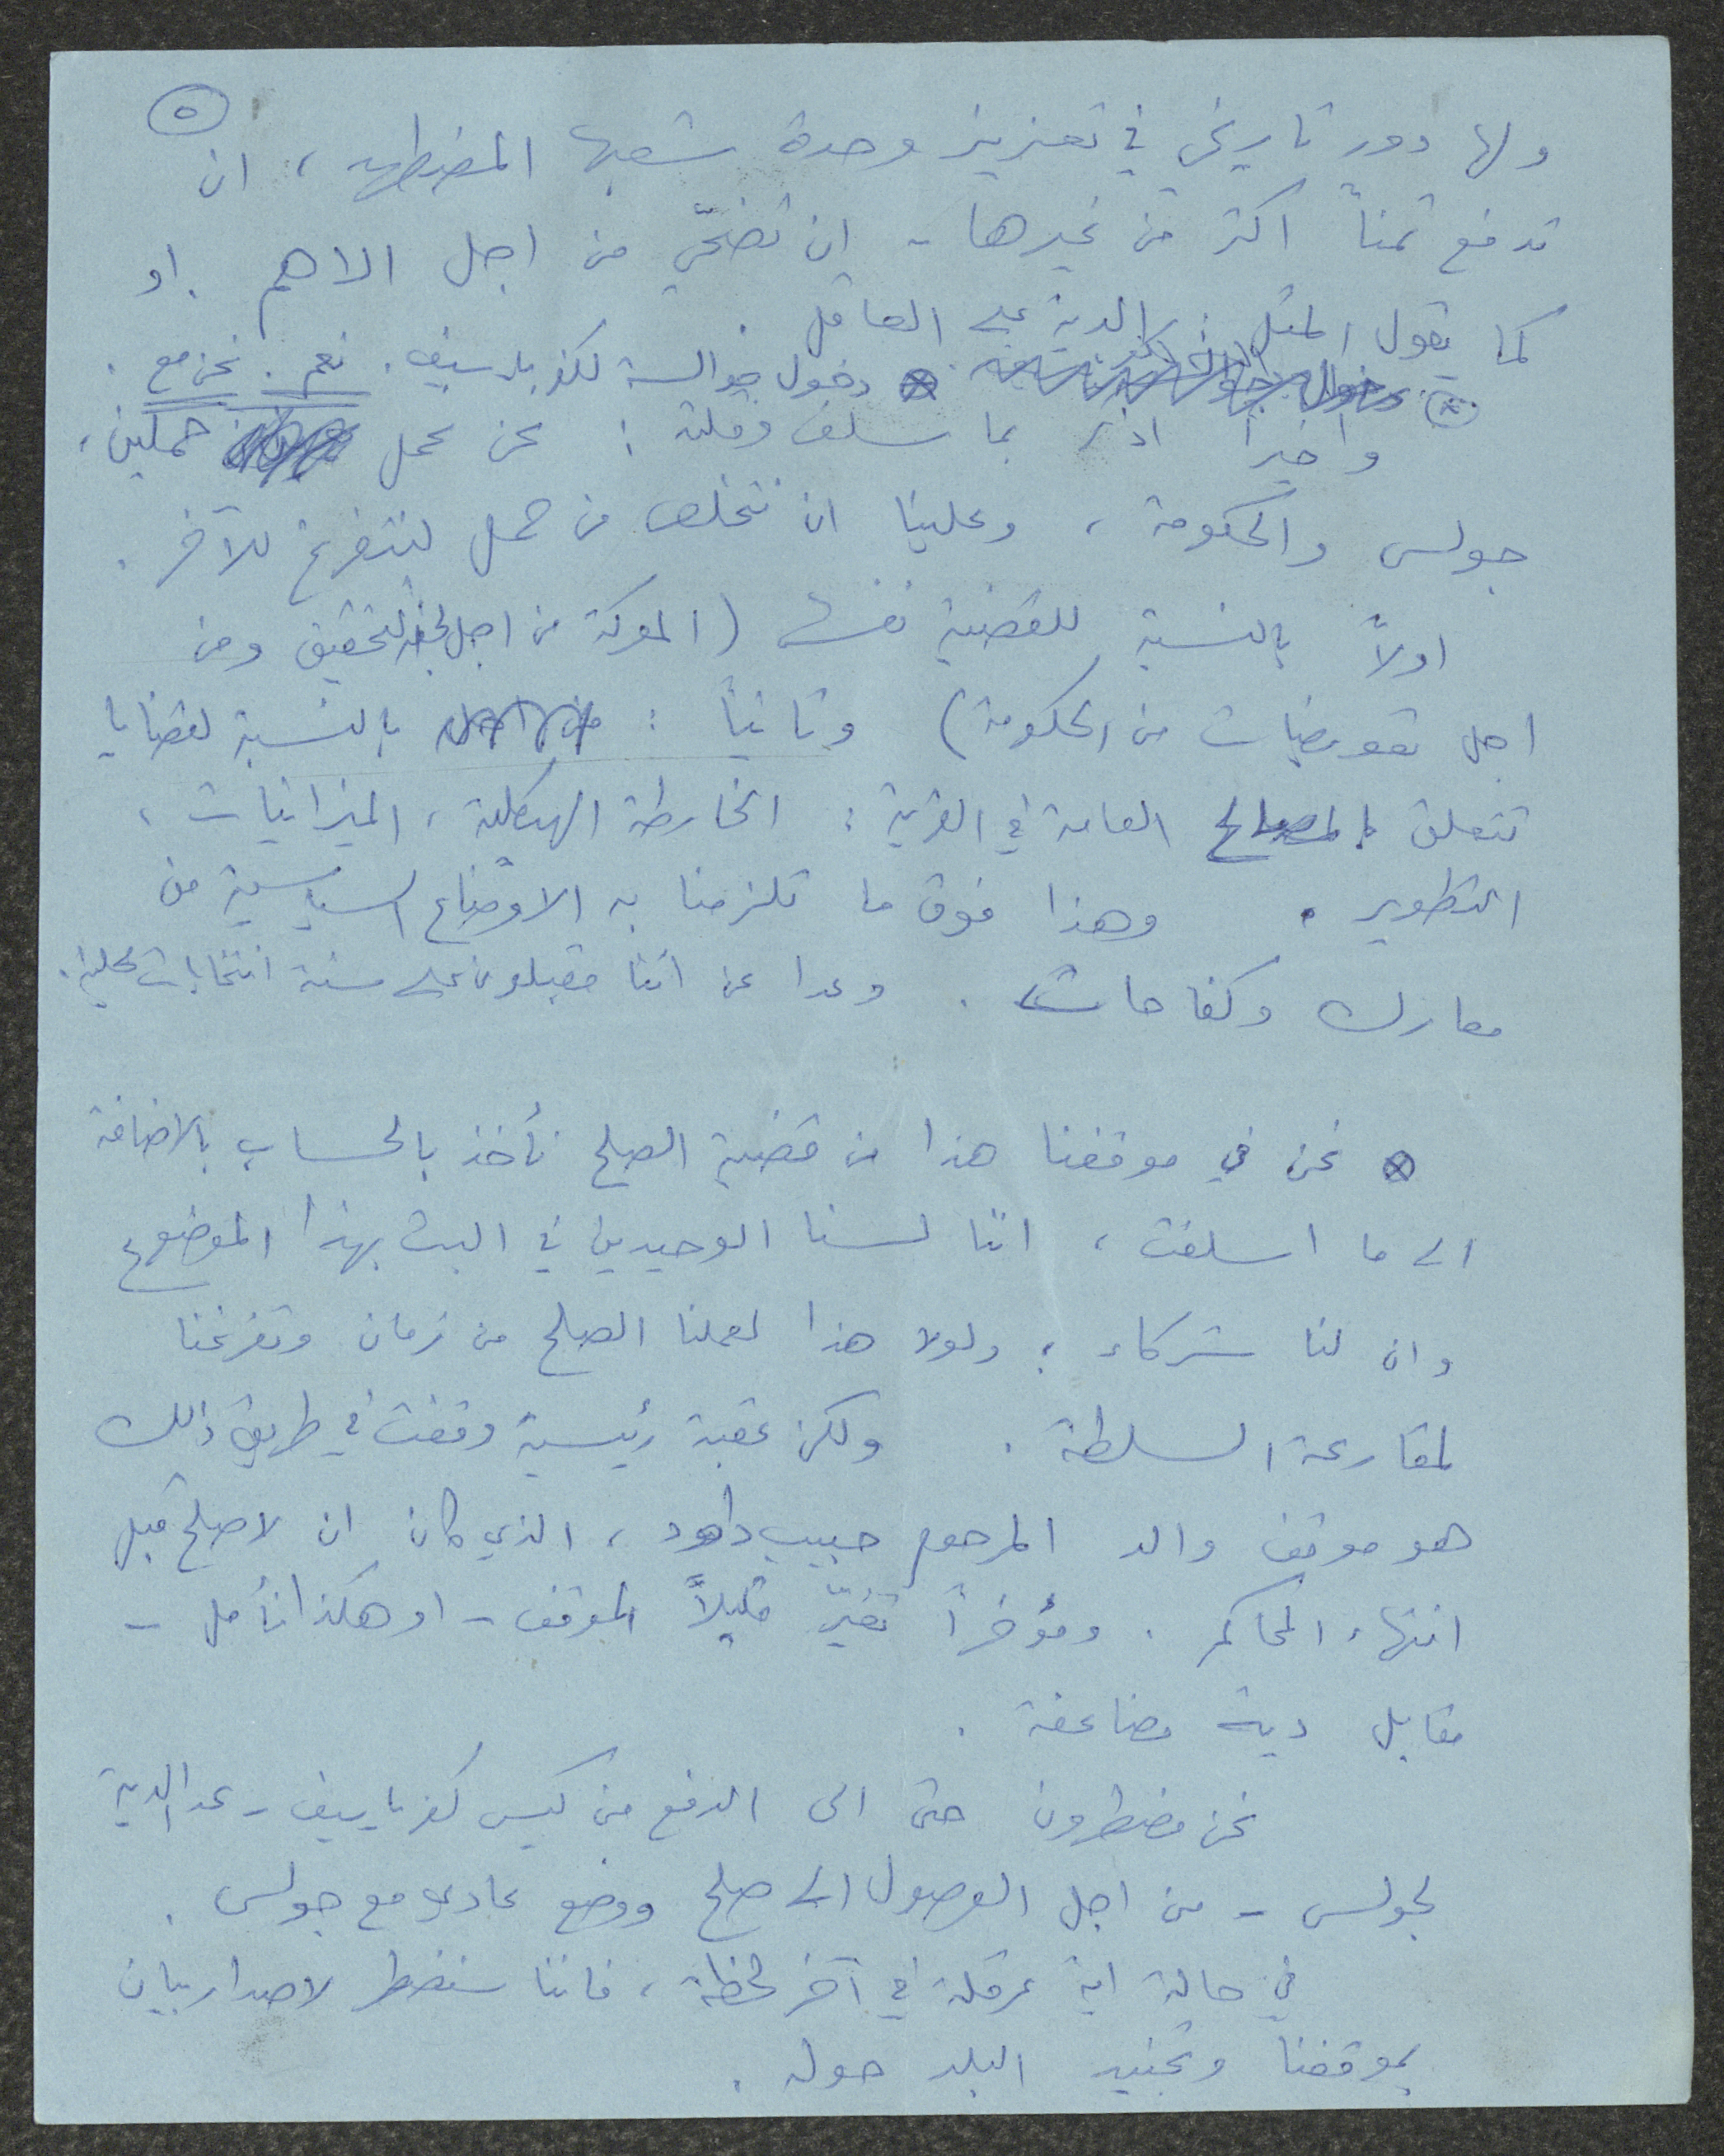 ٥
ولها دور تاريخي في تعزيز وحدة شعبها المضطهد، ان
تدفع ثمناً اكثر من غيرها - ان تضحّي من اجل الاهم. او
كما يقول المثل: الدية على العاقل.
⊗ دخول جوالسة لكفر ياسيف. نعم. نحن مع.
واخيراً اذكر بما سلف وقلته: نحن نحمل حملين،
جولس والحكومة، وعلينا ان نتخلص من حمل لنتفرغ للآخر.
اولاً بالنسبة للقضية نفسها (المعركة من اجل لجنة تحقيق ومن
اجل تعويضات من الحكومة) وثانياً: بالنسبة لقضايا
تتعلق بالمصالح العامة في القرية: الخارطة الهيكلية، الميزانيات،
التطوير. وهذا فوق ما تلزمنا به الاوضاع السياسية من
معارك وكفاحات. وعدا عن اننا مقبلون على سنة انتخابات محلية.
⊗ نحن في موقفنا هذا من قضية الصلح نأخذ بالحساب بالاضافة
الى ما اسلفت، اننا لسنا الوحيدين في البت بهذا الموضوع
وان لنا شركاء؛ ولولا هذا لعملنا الصلح من زمان وتفرغنا
لمقارعة السلطة. ولكن عقبة رئيسية وقفت في طريق ذلك
هو موقف والد المرحوم حبيب داهود، الذي كان ان لا صلح قبل
انتهاء المحاكم. ومؤخراً تغيّر قليلاً الموقف - او هكذا نأمل -
مقابل دية مضاعفة.
نحن مضطرون حتى الى الدفع من كيس كفر ياسيف - عدا الدية
لجولس - من اجل الوصول الى صلح ووضع عادي مع جولس.
في حالة اية عرقلة في آخر لحظة، فاننا سنضطر لاصدار بيان
بموقفنا وتجنيد البلد حوله.